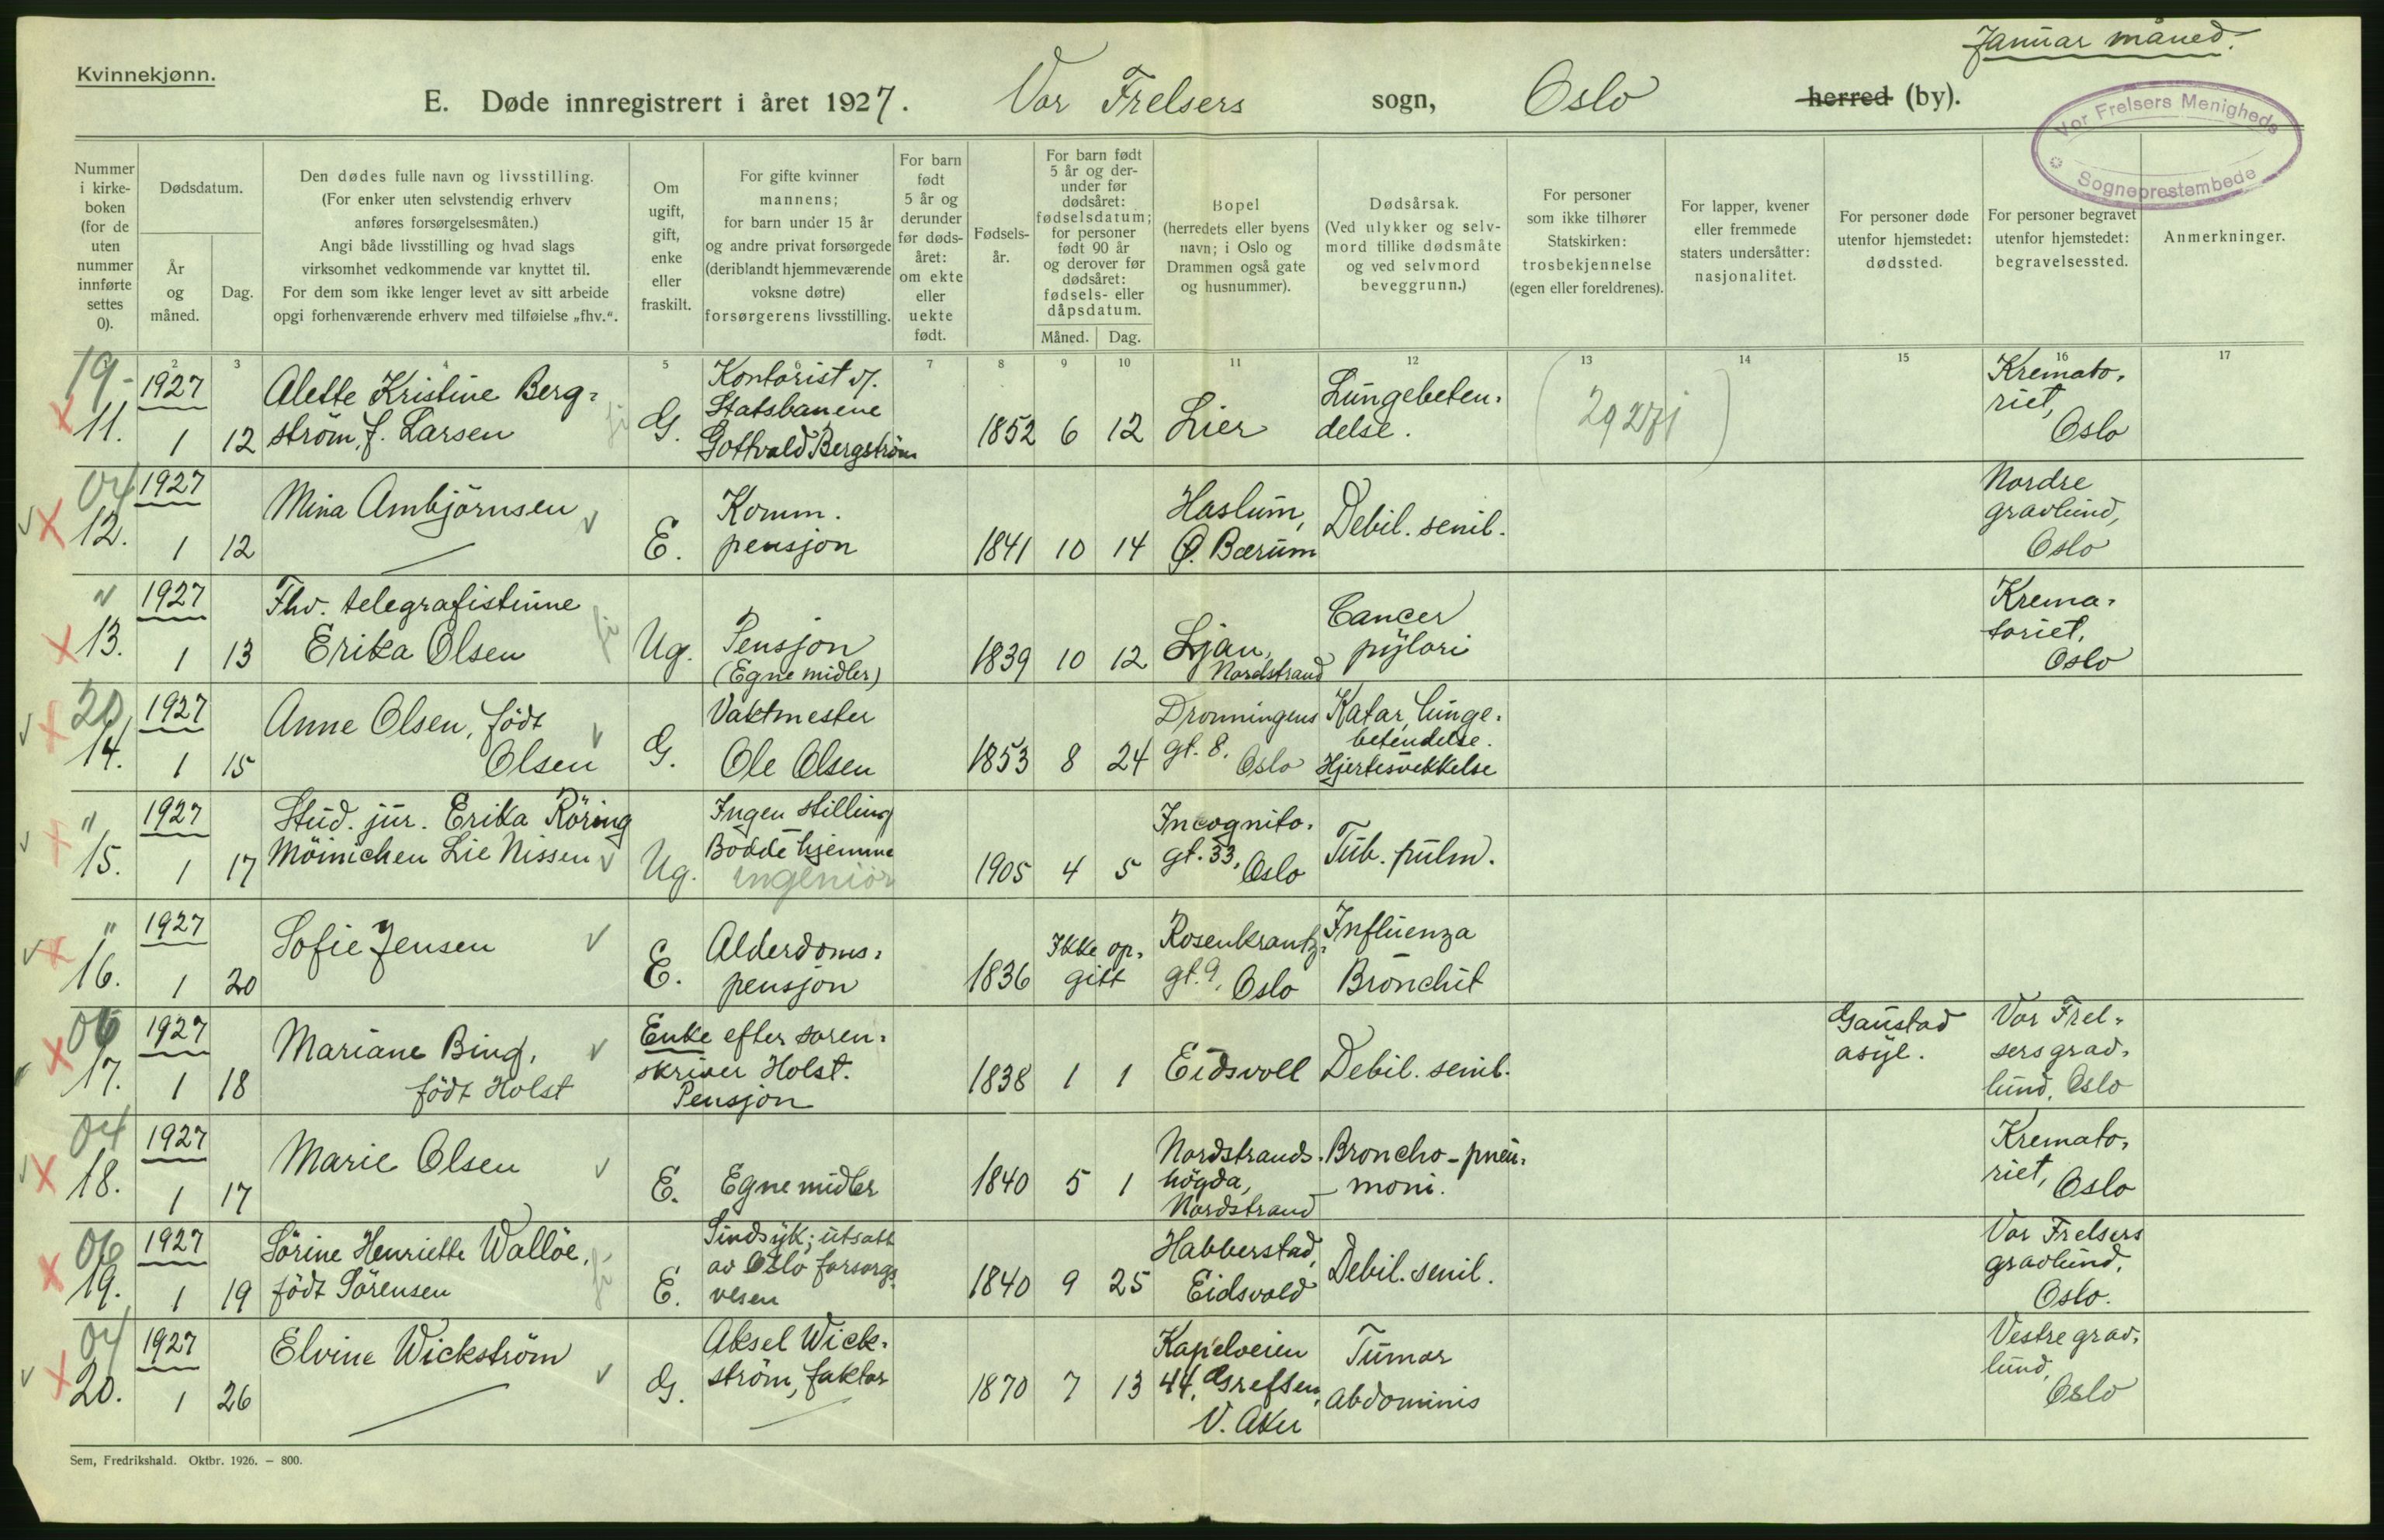 Januar måned.
Kvinnekjønn.
E. Døde innregistrert i året 1927. Vor Frelsers sogn, Oslo herred (by).
Vor Frelsers Menigheds
Sogneprestembede
Nummer i kirke-boken (for de uten nummer innførte settes 0).
Dødsdatum.
År og måned.
Dag.
Den dødes fulle navn og livsstilling.
(For enker uten selvstendig erhverv
anføres forsørgelsesmåten.)
Angi både livsstilling og hvad slags
virksomhet vedkommende var knyttet til.
For dem som ikke lenger levet av sitt arbeide
opgi forhenværende erhverv med tilføielse „fhv.“.
Om ugift, gift, enke eller fraskilt.
For gifte kvinner
mannens;
for barn under 15 år
og andre privat forsørgede
(deriblandt hjemmeværende
voksne døtre)
forsørgerens livsstilling.
For barn født 5 år og derunder før døds-året: om ekte eller uekte født.
Fødsels-år.
For barn født
5 år og der-
under før
dødsåret:
fødselsdatum;
for personer
født 90 år
og derover før
dødsåret:
fødsels- eller
dåpsdatum.
Måned. Dag.
Bopel
(herredets eller byens
navn; i Oslo og
Drammen også gate
og husnummer).
Dødsårsak.
(Ved ulykker og selv-
mord tillike dødsmåte
og ved selvmord
beveggrunn.)
For personer
som ikke tilhører
Statskirken:
trosbekjennelse
(egen eller foreldrenes).
For lapper, kvener
eller fremmede
staters undersåtter:
nasjonalitet.
For personer døde
utenfor hjemstedet:
dødssted.
For personer begravet
utenfor hjemstedet:
begravelsessted.
Anmerkninger.
2 3 4 5 7 8 9 10 11 12 13 14 15 16 17
19-
11. 1927 1 12
Alette Kristine Berg-
ström, f. Larsen
G.
Kontorist v/.
Statsbanene
Gottvald Bergström
1852 6 12
Lier
Lungebeten-
delse.
Kremato-
riet,
Oslo
04
12. 1927 1 12
Mina Ambjörnsen
E.
Komm.
pensjon
1841 10 14
Haslum,
Ø. Bærum
Debil. senil.
Nordre
gravlund,
Oslo
"
13. 1927 1 13
Fhv. telegrafistinne
Erika Olsen
Ug.
Pensjon
(Egne midler)
1839 10 12
Ljan,
Nordstrand
Cancer
pylori
Krema-
toriet,
Oslo
20
14. 1927 1 15
Anne Olsen, født
Olsen
G.
Vaktmester
Ole Olsen
1853 8 24
Dronningens
gt. 8. Oslo
Katar, lunge-
betendelse.
Hjertesvekkelse
"
15. 1927 1 17
Stud. jur. Erika Röring
Möinichen Lie Nissen
Ug.
Ingen stilling
Bodde hjemme
ingeniör
1905 4 5
Incognito-
gt. 33, Oslo
Tub. pulm.
"
16. 1927 1 20
Sofie Jensen
E.
Alderdoms-
pensjon
1836 Ikke op-
gitt
Rosenkrantz-
gt. 9, Oslo
Influenza
Bronchit
06
17. 1927 1 18
Mariane Bing,
født Holst
Enke efter soren-
skriver Holst.
Pensjon
1838 1 1
Eidsvoll
Debil. senil.
Gaustad
asyl.
Vor Frel-
sers grav-
lund, Oslo
04
18. 1927 1 17
Marie Olsen
E.
Egne midler
1840 5 1
Nordstrands-
högda,
Nordstrand
Broncho-pneu-
moni.
Kremato-
riet, Oslo
06
19. 1927 1 19
Sörine Henriette Wallöe,
født Sörensen
E.
Sindsyk; utsatt
av Oslo forsorgs-
vesen
1840 9 25
Habberstad,
Eidsvold
Debil. senil.
Vor Frelsers
gravlund,
Oslo.
04
20. 1927 1 26
Elvine Wickström
G.
Aksel Wick-
ström, faktor
1870 7 13
Kapelveien
44, Grefsen,
V. Aker
Tumor
abdominis
Vestre grav-
lund,
Oslo
Sem, Fredrikshald. Oktbr. 1926. – 800.